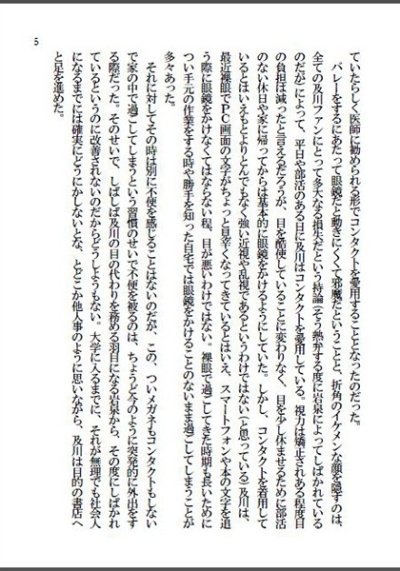 5
ていたらしく医師に勧められる形でコンタクトを愛用することとなったのだった。
バレーをするにあたって眼鏡だと動きにくくて邪魔だということと、折角のイケメンな顔を隠すのは、
全ての及川ファンにとって多大なる損失だという持論（そう熱弁する度に岩泉によってしばかれている
のだが）によって、平日や部活のある日に及川はコンタクトを愛用している。視力は矯正されある程度目
の負担は減ったと言えるだろうが、目を酷使していることに変わりなく、目を少し休ませるために部活
のない休日や家に帰ってからは基本的に眼鏡をかけるようにしていた。しかし、コンタクトを着用して
いるとはいえもとよりとんでもなく強い近視や乱視であるというわけではない（と思っている）及川は、
最近裸眼でPC画面の文字がちょっと見辛くなってきているとはいえ、スマートフォンや本の文字を追
う際に眼鏡をかけなくてはならない程、目が悪いわけではない。裸眼で過ごしてきた時期も長いために
つい手元の作業をする時や勝手を知った自宅では眼鏡をかけることのないまま過ごしてしまうことが
多々あった。
それに対してその時は別に不便を感じることはないのだが、この、ついメガネもコンタクトもしない
で家の中で過ごしてしまうという習慣のせいで不便を被るのは、ちょうど今のように突発的に外出をす
る際だった。そのせいで、しばしば及川の目の代わりを務める羽目になる岩泉から、その度にしばかれ
ているというのに改善されないのだからどうしようもない。大学に入るまでに、それが無理でも社会人
になるまでには確実にどうにかしないとな、とどこか他人事のように思いながら、及川は目的の書店へ
と足を進めた。